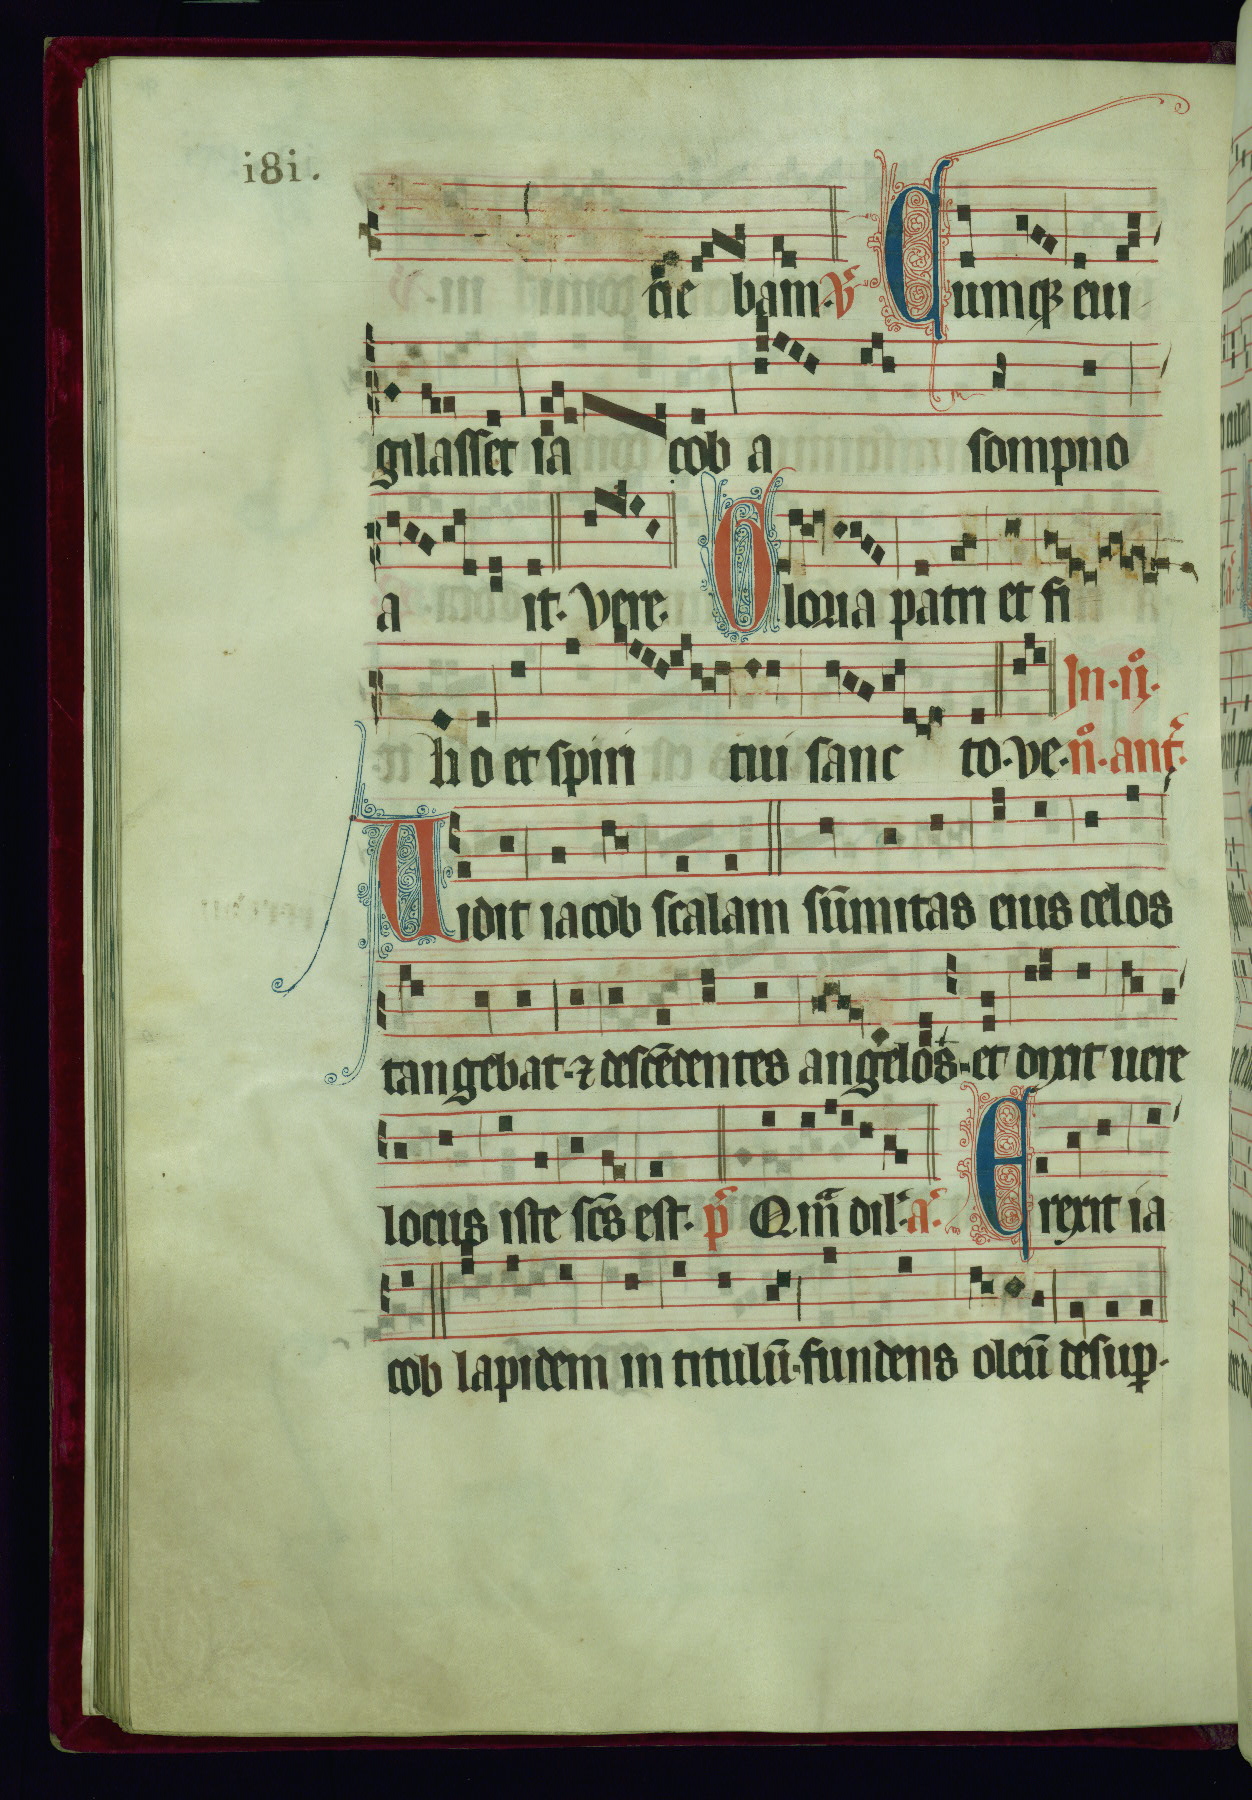 i8i.
cie bam. ℣ Cumqꝫ eui
gilasset ia cob a sompno
a it. Vere. Gloria patri et fi
In .ii°.
li o et spiri tui sanc to. ve. n°. ant.
Uidit iacob scalam sūmitas eius celos
tangebat. ⁊ descēdentes angelos. et dixit uere
locus iste scs est. p̄ Qm̄ dil. a. Erexit ia
cob lapidem in titulū. fundens oleū desup.